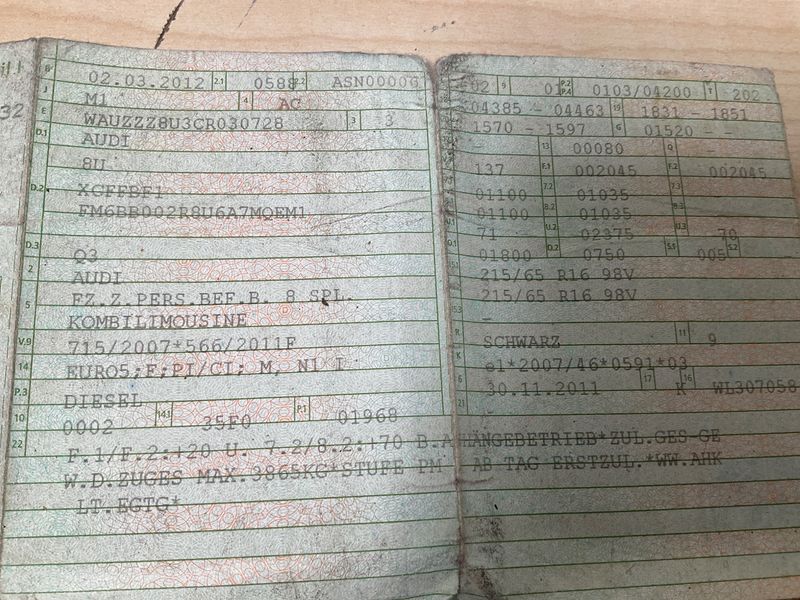 B 02.03.2012 2.1 0588 2.2 ASN00006
J M1 4 AC
E WAUZZZ8U3CR030728 3 3
D.1 AUDI
8U
D.2 XCFFBF1
FM6BB002R8U6A7MQEM1
D.3 Q3
2 AUDI
5 FZ.Z.PERS.BEF.B. 8 SPL.
KOMBILIMOUSINE
V.9 715/2007*566/2011F
14 EURO5;F;PI/CI; M, N1 I
P.3 DIESEL
10 0002 14.1 35F0 P.1 01968
22 F.1/F.2:+20 U. 7.2/8.2:+70 B.AHÄNGEBETRIEB*ZUL.GES-GE
W.D.ZUGES MAX.3865KG*STUFE PM AB TAG ERSTZUL.*WW.AHK
LT.EGTG*
02 9 01 P.2 P.4 0103/04200 T 202
04385 - 04463 19 1831 - 1851
1570 - 1597 G 01520 - -
- 13 00080 Q -
137 F.1 002045 F.2 002045
01100 7.2 01035 7.3 -
01100 8.2 01035 8.3 -
71 U.2 02375 U.3 70
01800 D.2 0750 S.1 005 S.2
215/65 R16 98V
215/65 R16 98V
-
R SCHWARZ 11 9
K e1*2007/46*0591*03
6 30.11.2011 17 K 16 WL307058
21
32